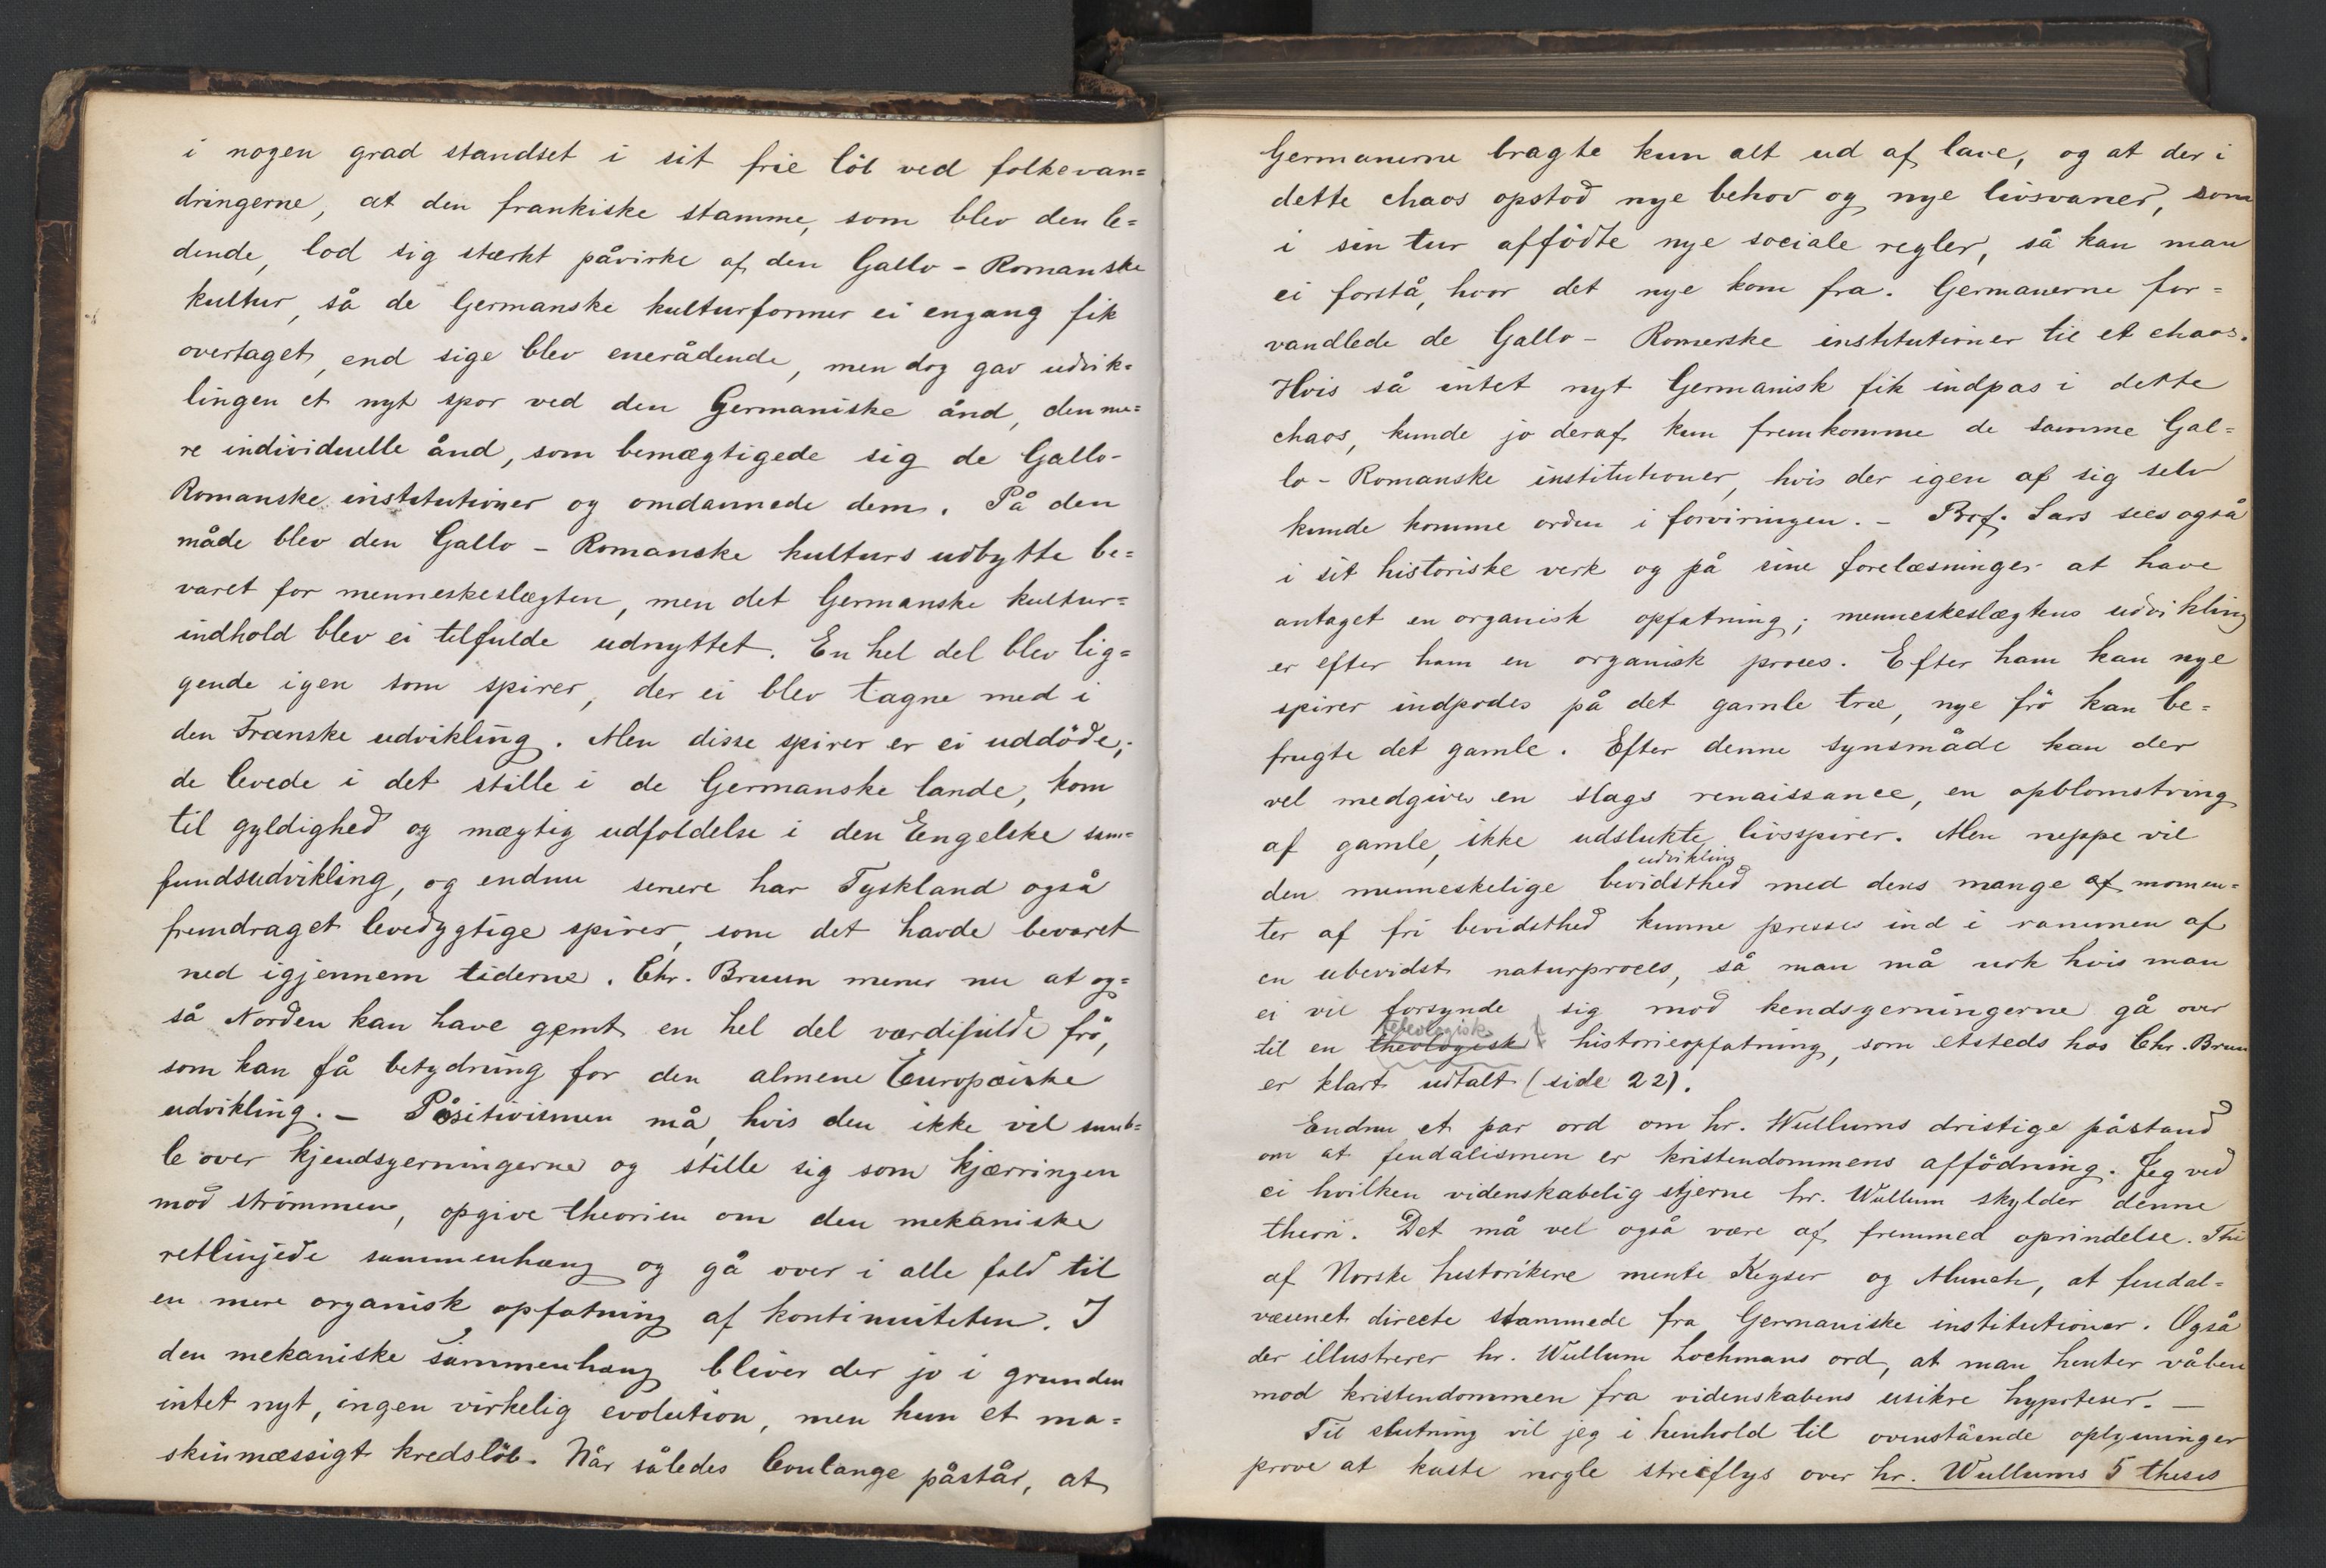 i nogen grad standset i sit frie löb ved folkevan=
dringerne, at den frankiske stamme, som blev den le=
dende, lod sig stærkt påvirke af den Gallo-Romanske
kultur, så de Germanske kulturformer ei engang fik
overtaget, end sige blev enerådende, men dog gav udvik=
lingen et nyt spor ved den Germaniske ånd, den me=
re individuelle ånd, som bemægtigede sig de Gallo-
Romanske institutioner og omdannede dem. På den
måde blev den Gallo-Romanske kulturs udbytte be=
varet for menneskeslægten, men det Germanske kultur=
indhold blev ei tilfulde udnyttet. En hel del blev lig=
gende igen som spirer, der ei blev tagne med i
den Franske udvikling. Men disse spirer er ei uddöde;
de levede i det stille i de Germanske lande, kom
til gyldighed og mægtig udfoldelse i den Engelske sam=
fundsudvikling, og endnu senere har Tyskland også
fremdraget levedygtige spirer, som det havde bevaret
ned igjennem tiderne. Chr. Bruun mener nu at og=
så Norden kan have gemt en hel del værdifulde frö,
som kan få betydning for den almene Europæiske
udvikling. – Positivismen må, hvis den ikke vil snub=
le over kjendsgerningerne og stille sig som kjærringen
mod strömmen, opgive theorien om den mekaniske
retlinjede sammenhæng og gå over i alle fald til
en mere organisk opfatning af kontinuiteten. I
den mekaniske sammenhæng bliver der jo i grunden
intet nyt, ingen virkelig evolution, men kun et ma=
skinmæssigt kredslöb. Når således Coulange påstår, at
Germanerne bragte kun alt ud af lave, og at der i
dette chaos opstod nye behov og nye livsvaner, som
i sin tur affödte nye sociale regler, så kan man
ei forstå, hvor det nye kom fra. Germanerne for=
vandlede de Gallo-Romerske institutioner til et chaos.
Hvis så intet nyt Germanisk fik indpas i dette
chaos, kunde jo deraf kun fremkomme de samme Gal=
lo-Romanske institutioner, hvis der igen af sig selv
kunde komme orden i forviringen. – Prof. Sars sees også
i sit historiske verk og på sine forelæsninger at have
antaget en organisk opfatning; menneskeslægtens udvikling
er efter ham en organisk proces. Efter ham kan nye
spirer indpodes på det gamle træ, nye frö kan be=
frugte det gamle. Efter denne synsmåde kan der
vel medgives en slags renaissance, en opblomstring
af gamle, ikke udslukte livsspirer. Men neppe vil
udvikling
den menneskelige bevidsthed med dens mange af momen=
ter af fri bevidsthed kunne presses ind i rammen af
en ubevidst naturproces, så man må nok hvis man
ei vil forsynde sig mod kendsgerningerne gå over
teleologisk
til en theologisk historieopfatning, som etsteds hos Chr. Bruun
er klart udtalt (side 22).
Endnu et par ord om hr. Wullums dristige påstand
om at feudalismen er kristendommens affödning. Jeg ved
ei hvilken videnskabelig stjerne hr. Wullum skylder denne
theori. Det må vel også være af fremmed oprindelse. Thi
af Norske historikere mente Keyser og Munch, at feudal=
væsenet directe stammede fra Germaniske institutioner. Også
der illustrerer hr. Wullum Lochmans ord, at man henter våben
mod kristendommen fra videnskabens usikre hypoteser. —
Til slutning vil jeg i henhold til ovenstående oplysninger
pröve at kaste nogle streiflys over hr. Wullums 5 theses